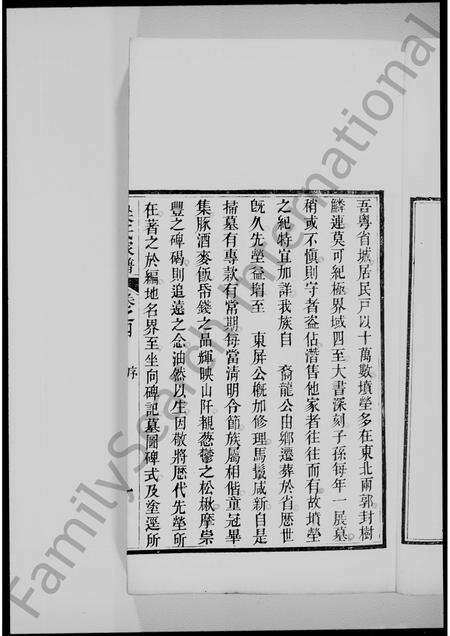 吾粵省城居民戶以十萬數墳塋多在東北兩郭封樹
鱗連莫可紀極界域四至大書深刻子孫每年一展墓
稍或不愼則守者盜佔潛售他家者往往而有故墳塋
之紀特宜加詳我族自　裔龍公由鄉遷葬於省歷世
旣久先塋益增至　東屏公槪加修理馬鬣咸新自是
掃墓有專款有常期每當淸明令節族屬相偕童冠畢
集豚酒麥飯帋錢之品輝映山阡覩蔥鬱之松楸摩崇
豐之碑碣則追遠之念油然以生因敬將歷代先塋所
在著之於編地名界至坐向碑記墓圖碑式及塗逕所
家譜　卷之　序　一
FamilySearch International